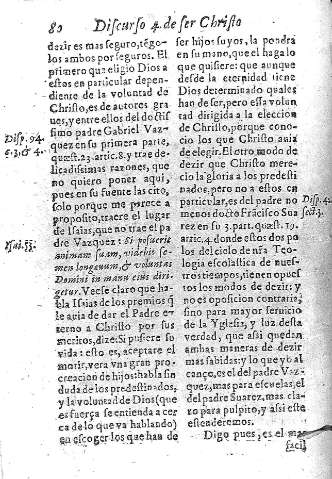 80 Discurso 4. de ser Christo
dezir es mas seguro, tẽgo-
los ambos por seguros. El
primero que eligio Dios a
estos en particular depen-
diente de la voluntad de
Christo, es de autores gra-
ues, y entre ellos del doctis
simo padre Gabriel Vaz-
Disp. 94.
quez en su primera parte,
c. 3. & 4.
quæst. 23. artic. 8. y trae de-
licadissimas razones, que
no quiero poner aqui,
pues en su fuente las cito,
solo porque me parece a
proposito, traere el lugar
de Isaias, que no trae el pa
Isai. 53.
dre Vazquez: Si posuerit
animam suam, videbit se-
men longæuum, & voluntas
Domini in manu eius diri-
getur. Veese claro que ha-
bla Isaias de los premios q̃
le auia de dar el Padre e-
terno a Christo por sus
meritos, dize: Si pusiere su
vida: esto es, aceptare el
morir, vera vna gran pro-
creacion de hijos: habla sin
duda de los predestinados,
y la voluntad de Dios (que
es fuerça se entienda a cer-
ca de lo que va hablando)
en escoger los que han de
ser hijos suyos, la pondra
en su mano, que el haga lo
que quisiere: que aunque
desde la eternidad tiene
Dios determinado quales
han de ser, pero essa volun
tad dirigida a la eleccion
de Christo, porque cono-
cio los que Christo auia
de elegir. El otro modo de
dezir que Christo mere-
cio la gloria a los predesti
nados, pero no a estos en
particular, es del padre no
Disp. 4.
menos docto Frãcisco Sua
sect. 3.
rez en su 3. part. quæst. 19.
artic. 4. donde estos dos po
los del cielo de nr̃a Teo-
logia escolastica de nues-
tros tiempos, tienen opues
tos los modos de dezir: y
no es oposicion contraria,
sino para mayor seruicio
de la Yglesia, y luz desta
verdad, que assi quedan
ambas maneras de dezir
mas sabidas: y lo que yo al
canço, es el del padre Vaz-
quez, mas para escuelas, el
del padre Suarez, mas cla-
ro para pulpito, y assi este
estenderemos.
Digo pues, es el mas